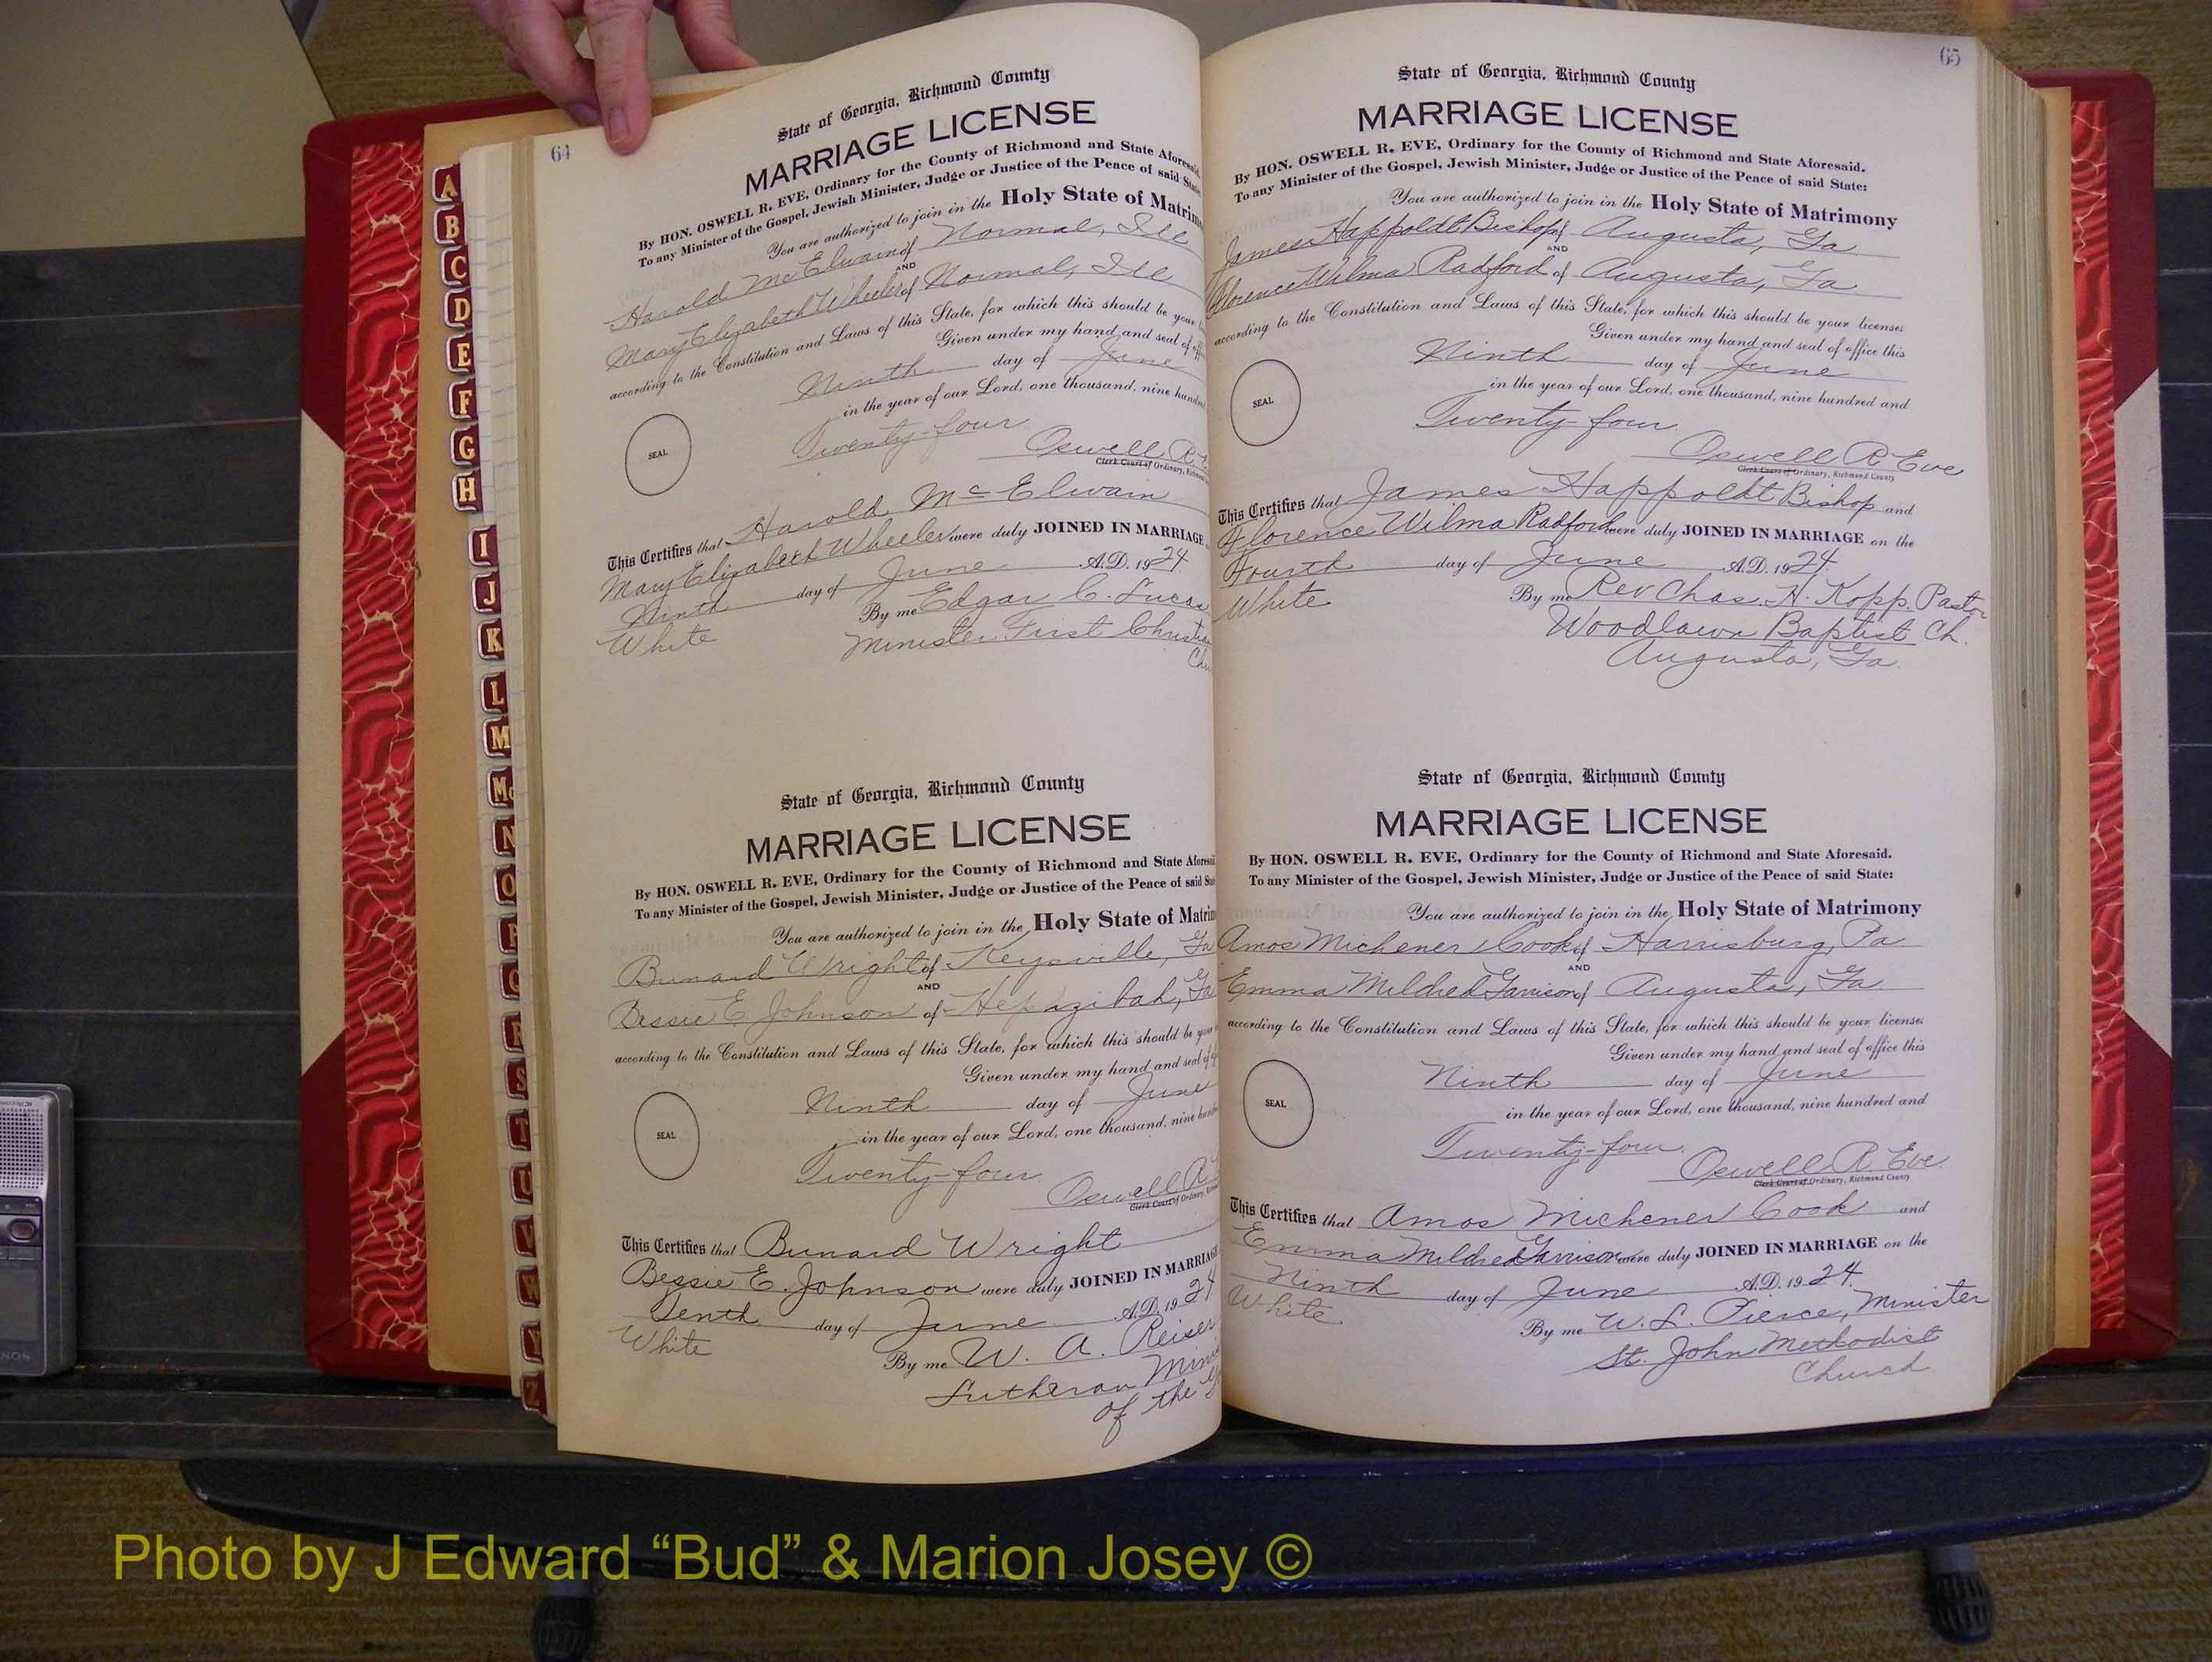 64
State of Georgia, Richmond County
MARRIAGE LICENSE
By HON. OSWELL R. EVE, Ordinary for the County of Richmond and State Aforesaid.
To any Minister of the Gospel, Jewish Minister, Judge or Justice of the Peace of said State
You are authorized to join in the Holy State of Matrim
Harold McElwain of Normal, Ill
AND
Mary Elizabeth Wheeler of Normal, Ill
according to the Constitution and Laws of this State, for which this should be your
Given under my hand and seal of
Ninth day of June
in the year of our Lord, one thousand, nine hundre
Twenty-four
SEAL
Oswell R
Clerk Court of Ordinary, Richmond
This Certifies that Harold McElwain
Mary Elizabeth Wheeler were duly JOINED IN MARRIAGE
Ninth day of June A.D. 1924
White By me Edgar C. Lucas
Minister First Christian
Ch
State of Georgia, Richmond County
MARRIAGE LICENSE
By HON. OSWELL R. EVE, Ordinary for the County of Richmond and State Aforesai
To any Minister of the Gospel, Jewish Minister, Judge or Justice of the Peace of said State
You are authorized to join in the Holy State of Matrim
Bunard Wright of Keysville, Ga
AND
Bessie E. Johnson of Hepazibah, Ga
according to the Constitution and Laws of this State, for which this should be your
Given under my hand and seal of
Ninth day of June
in the year of our Lord, one thousand, nine hundre
SEAL
Twenty-four
Oswell R
Clerk Court of Ordinary, Richmond
This Certifies that Bunard Wright
Bessie E. Johnson were duly JOINED IN MARRIAGE
Tenth day of June A.D. 1924
White By me W. A. Reiser
Lutheran Min
of the G
65
State of Georgia, Richmond County
MARRIAGE LICENSE
By HON. OSWELL R. EVE, Ordinary for the County of Richmond and State Aforesaid.
To any Minister of the Gospel, Jewish Minister, Judge or Justice of the Peace of said State:
You are authorized to join in the Holy State of Matrimony
James Happoldt Bishop of Augusta, Ga.
AND
Florence Wilma Radford of Augusta, Ga.
according to the Constitution and Laws of this State, for which this should be your license:
Given under my hand and seal of office this
Ninth day of June
in the year of our Lord, one thousand, nine hundred and
SEAL
Twenty-four
Oswell R Eve
Clerk Court of Ordinary, Richmond County
This Certifies that James Happoldt Bishop and
Florence Wilma Radford were duly JOINED IN MARRIAGE on the
Fourth day of June A.D. 1924
White By me Rev Chas. H. Kopp. Pastor
Woodlawn Baptist Ch.
Augusta, Ga.
State of Georgia, Richmond County
MARRIAGE LICENSE
By HON. OSWELL R. EVE, Ordinary for the County of Richmond and State Aforesaid.
To any Minister of the Gospel, Jewish Minister, Judge or Justice of the Peace of said State:
You are authorized to join in the Holy State of Matrimony
Amos Michener Cook of Harrisburg, Pa
AND
Emma Mildred Garrison of Augusta, Ga.
according to the Constitution and Laws of this State, for which this should be your license:
Given under my hand and seal of office this
Ninth day of June
in the year of our Lord, one thousand, nine hundred and
SEAL
Twenty-four
Oswell R. Eve
Clerk Court of Ordinary, Richmond County
This Certifies that Amos Michener Cook and
Emma Mildred Garrison were duly JOINED IN MARRIAGE on the
Ninth day of June A.D. 1924
White By me W. L. Pierce, Minister
St. John Methodist
Church
A
B
C
D
E
F
G
H
I
J
K
L
M
Mc
N
O
P
Q
R
S
T
U
V
W
Y
Z
Photo by J Edward “Bud” & Marion Josey ©